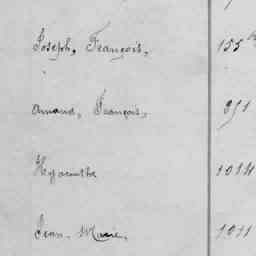 Joseph, François, 155
Amand, François, 391
Hyacinthe 1014
Jean-Marie, 1011